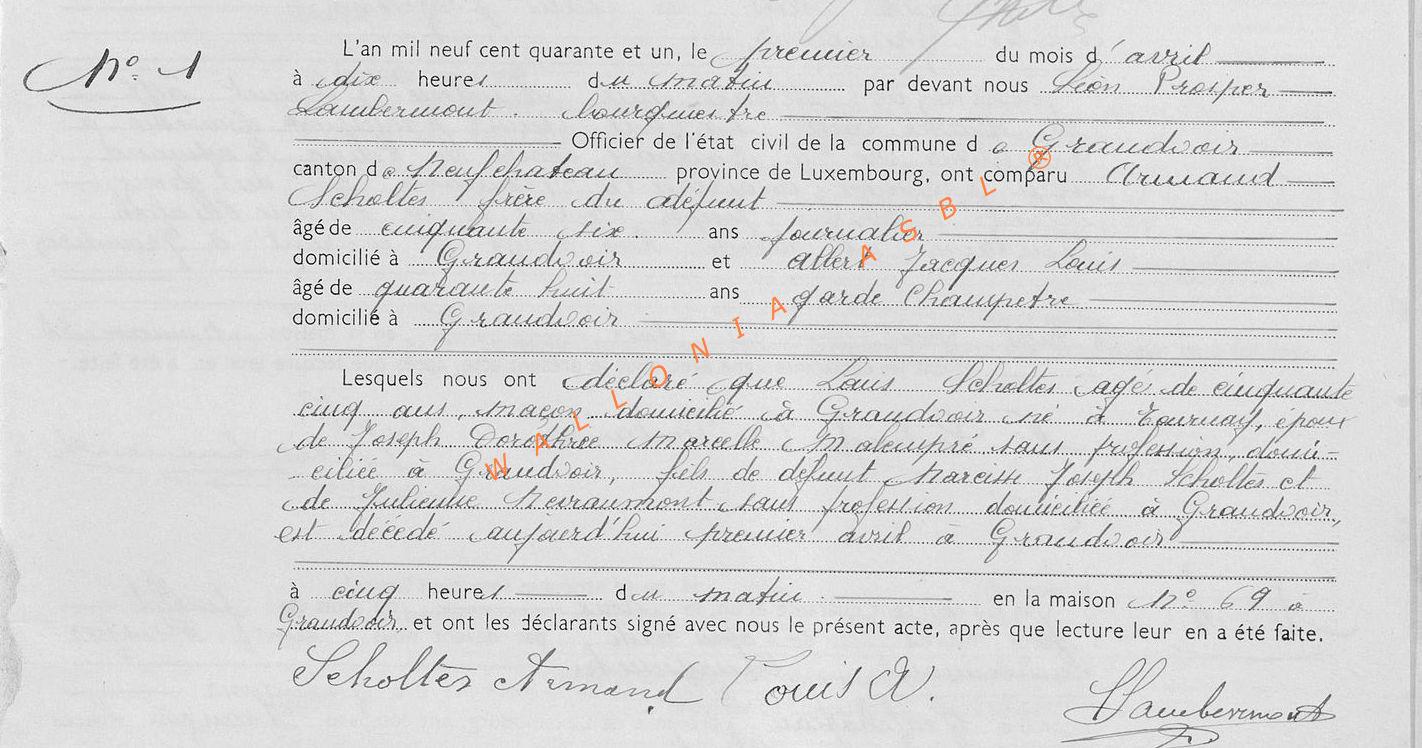 N° 1
L'an mil neuf cent quarante et un, le premier du mois d'avril
à dix heures du matin par devant nous Léon Prosper
Lambermont bourgmestre
Officier de l'état civil de la commune de Grandvoir
canton de Neufchateau province de Luxembourg, ont comparu Armand
Scholtes frère du défunt
âgé de cinquante six ans journalier
domicilié à Grandvoir et Jacques Louis
âgé de quarante huit ans garde Champetre
domicilié à Grandvoir
Lesquels nous ont déclaré que Louis Scholtes agés de cinquante
cinq ans, maçon domicilié à Grandvoir né à Tournay, époux
de Joseph Dorothée Marcelle Malempré sans profession, domi-
ciliée à Grandvoir, fils de défunt Narcisse Joseph Scholtes et
de Julienne Nevraumont sans profession domiciliée à Grandvoir,
est décédé aujourd'hui premier avril à Grandvoir
à cinq heures du matin en la maison N° 69 à
Grandvoir et ont les déclarants signé avec nous le présent acte, après que lecture leur en a été faite.
Scholtes Armand Louis A. Lambermont
WALLONIA ASBL ®